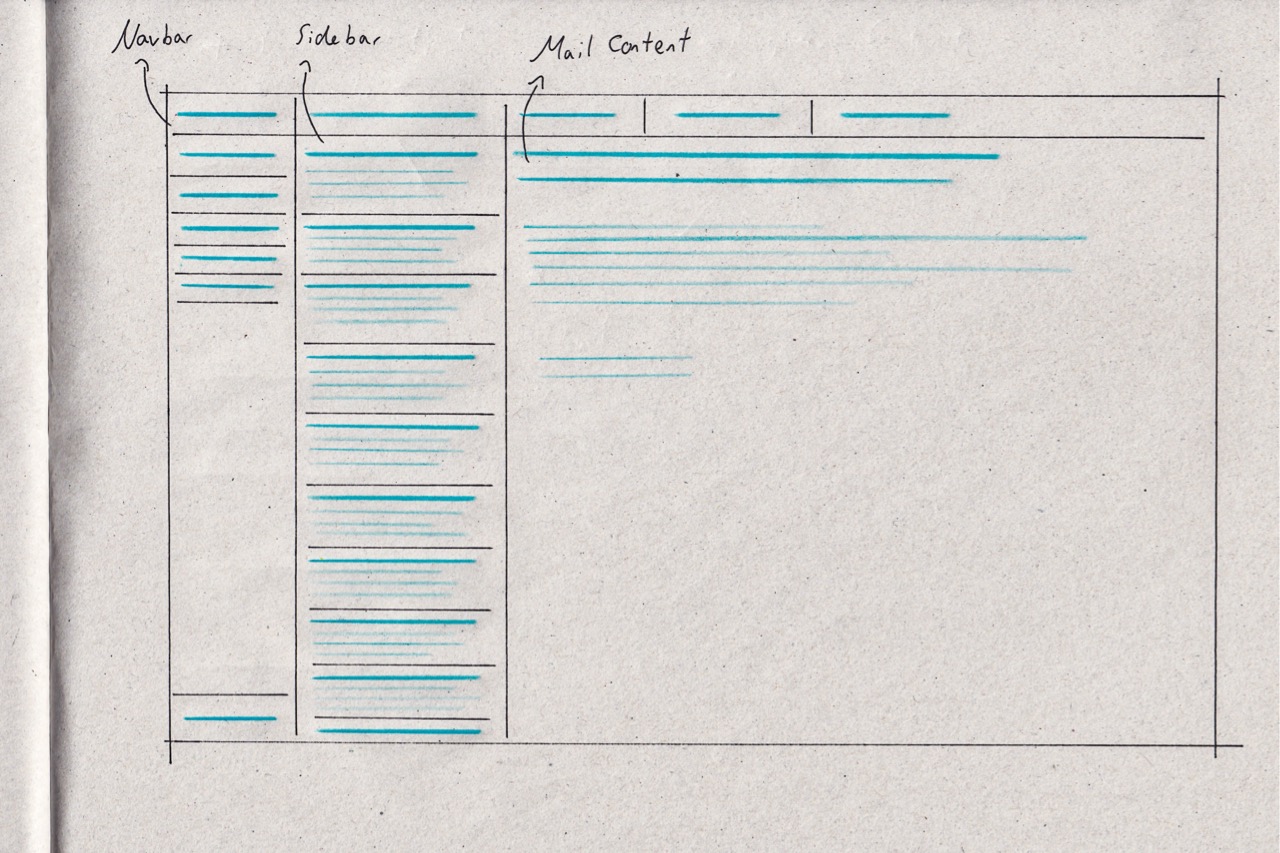 Navbar
Sidebar
Mail Content